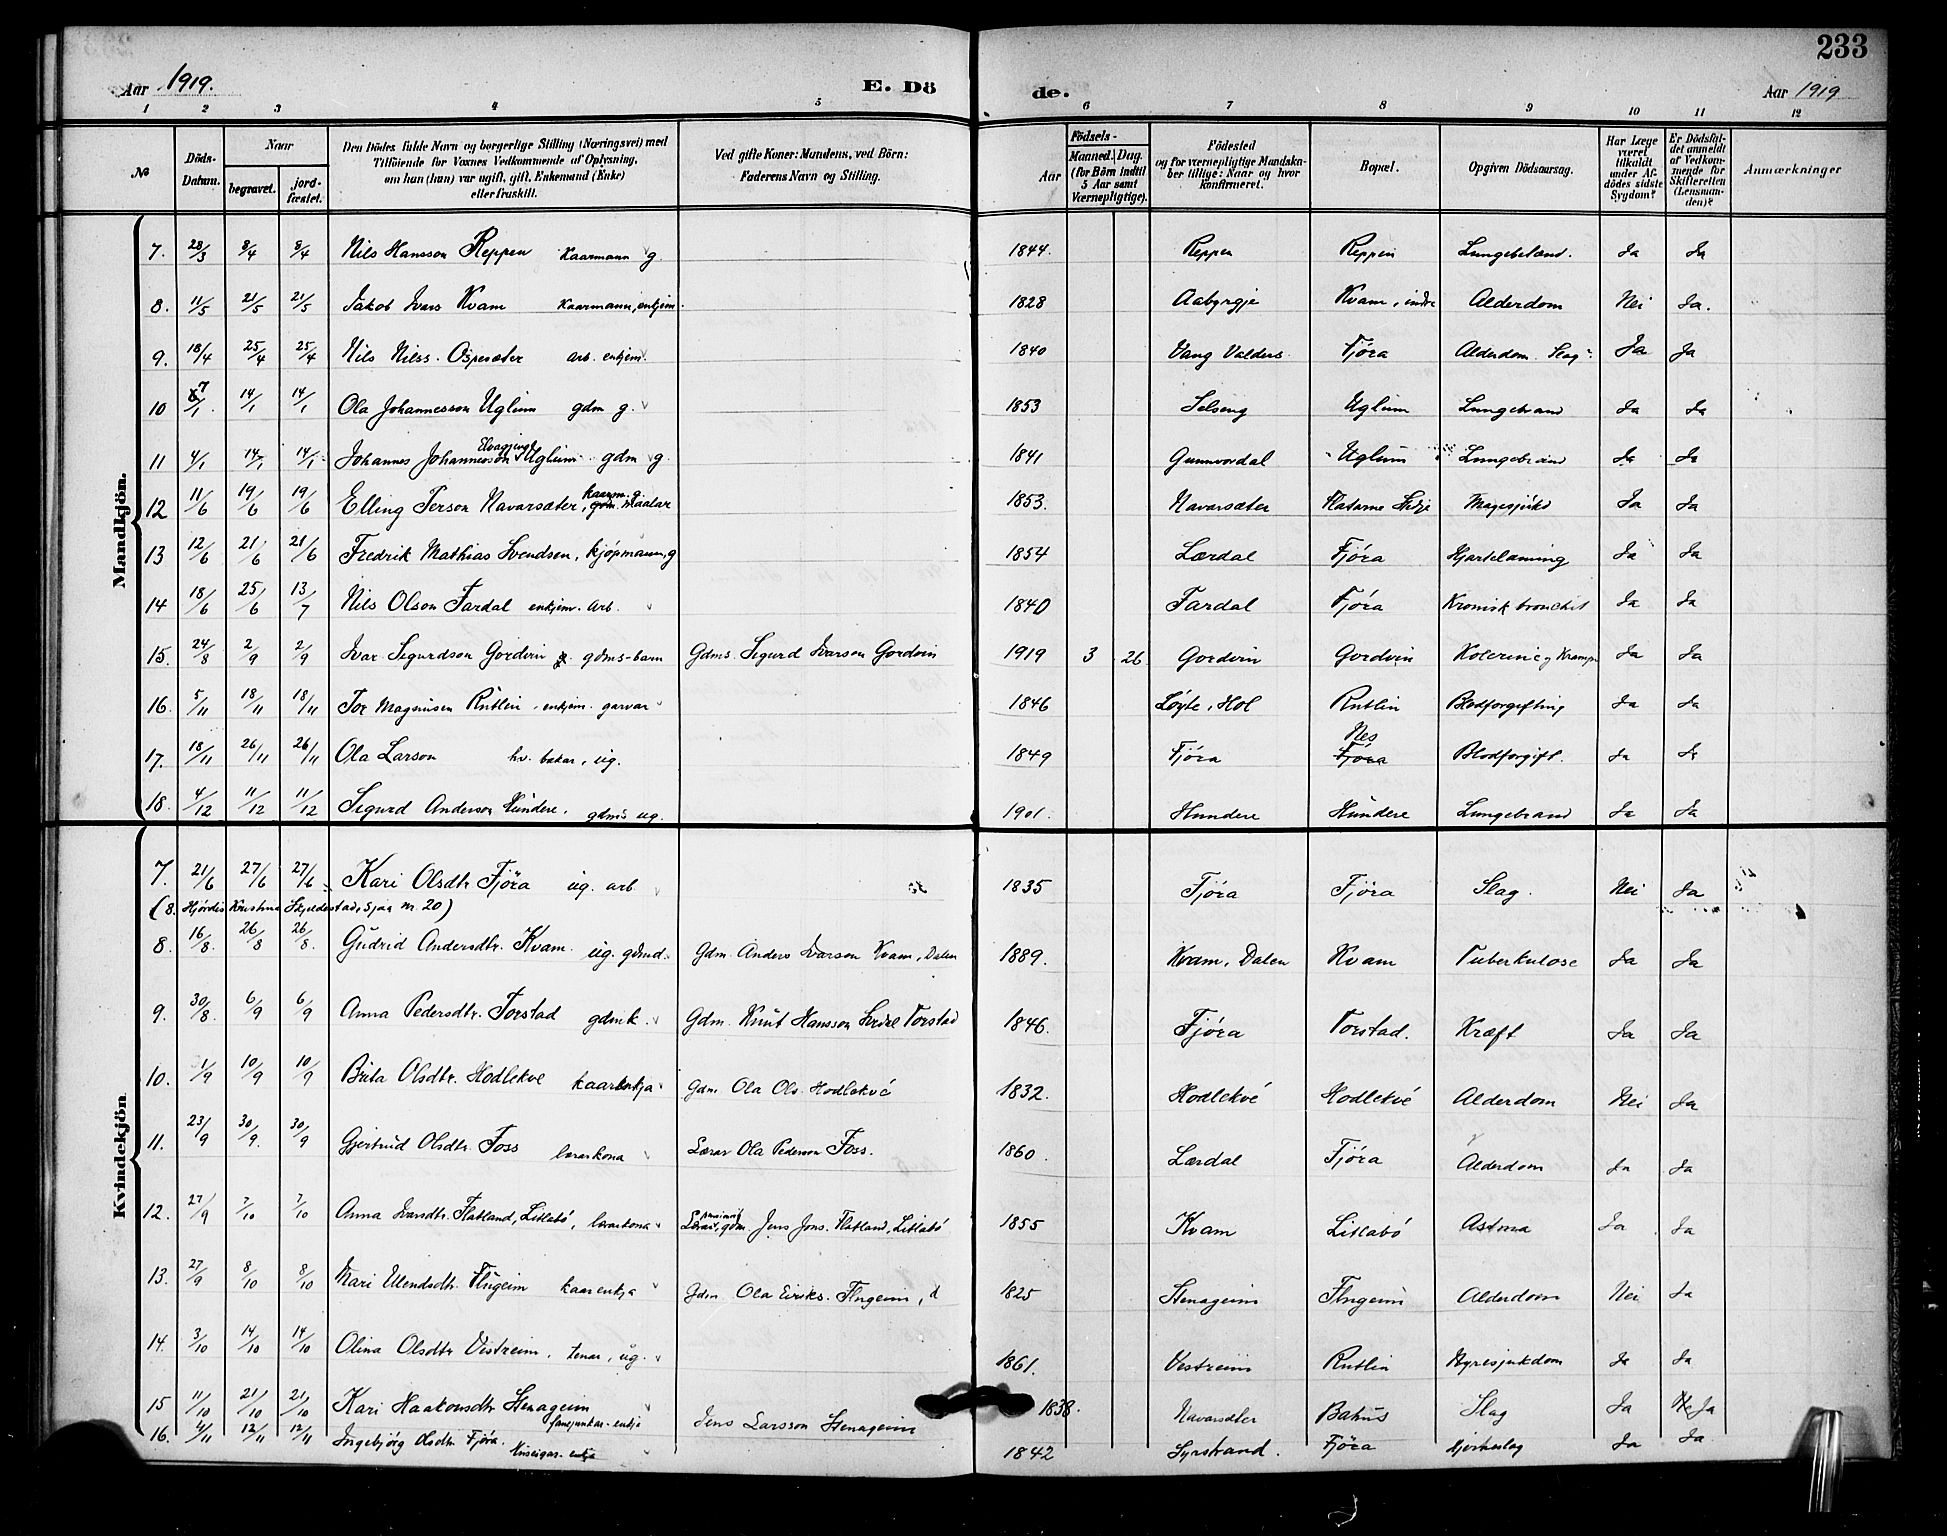 233
Aar 1919. E. Dö de. Aar 1919
1 2 3 4 5 6 7 8 9 10 11 12
№ Döds-Datum. Naar begravet. jord-fæstet. Den Dödes fulde Navn og borgerlige Stilling (Næringsvei) med Tilföiende for Voxnes Vedkommende af Oplysning, om han (hun) var ugift, gift, Enkemand (Enke) eller fraskilt. Ved gifte Koner: Mandens, ved Börn: Faderens Navn og Stilling. Aar Födsels- Maaned. Dag. (for Börn indtil 5 Aar samt Værnepligtige). Födested og for værnepligtige Mandskaber tillige: Naar og hvor konfirmeret. Bopæl. Opgiven Dödsaarsag. Har Læge været tilkaldt under Afdödes sidste Sygdom? Er Dödsfaldet anmeldt af Vedkommende for Skifteretten (Lensmanden)? Anmærkninger
Mandkjön.
7. 28/3 8/4 8/4 Nils Hansson Reppen kaarmann g. 1844. Reppen Reppen Lungebetænd. Ja Ja
8. 11/5 21/5 21/5 Jakob Ivars Kvam kaarmann, enkjem. 1828 Aabyrgje Kvam, indre Alderdom Nei Ja.
9. 18/4 25/4 25/4 Nils Nilss. Ospesæter arb. enkjem. 1840 Vang Valders Fjöra Alderdom Slag Ja Ja
10 7/1 14/1 14/1 Ola Johannesson Uglum gdm g. 1853 Selseng Uglum Lungebrand Ja Ja
11 4/1 14/1 14/1 Johannes Johannesson Uglum gdm g. 1841 Gunnvordal Uglum Lungebrand Ja Ja
12 11/6 19/6 19/6 Elling Person Navarsæter, kaarm. g. gdm. maalar 1853. Navarsæter Flatarne Hedje Magesjukd Ja Ja
13 12/6 21/6 21/6 Fredrik Mathias Svendsen, kjöpmann, g 1854 Lærdal Fjöra Hjartelaming Ja Ja
14 18/6 25/6 13/7 Nils Olson Fardal enkjem. arb. 1840 Fardal Fjöra Kronisk bronchit Ja Ja
15. 24/8 2/9 2/9 Ivar Sigurdson Gordvin gdms-barn Gdms. Sigurd Ivarson Gordvin 1919 3 26 Gordvin Gordvin Kolerine og Krampe Ja Ja
16. 5/11 18/11 18/11 Tor Magnusen Rutlin enkjem. garvar 1846 Löyte, Hol Rutlin Blodforgifting Ja Ja
17. 18/11 26/11 26/11 Ola Larson hv. bakar, ug. 1849 Fjöra Nes Fjöra Blodforgift. Ja Ja
18. 4/12 11/12 11/12 Sigurd Anderson Hundere. gdms ug. 1901. Hundere Hundere Lungebrand Ja Ja
Kvindekjön.
7. 21/6 27/6 27/6 Kari Olsdtr Fjöra ug. arb 1835 Fjöra Fjöra Slag. Nei Ja
(8. Hjördis Kristine Skjeldestad, sjaa nr. 20)
8. 16/8. 26/8 26/8. Gudrid Andersdtr. Kvam. ug. gdmd. Gdm. Anders Ivarson Kvam, Dalen 1889. Kvam, Dalen Kvam Tuberkulose Ja Ja
9. 30/8. 6/9 6/9 Anna Pedersdtr. Torstad gdmk. Gdm. Knut Hansson Torstad 1846. Fjöra Torstad. Kræft Ja Ja
10. 1/9 10/9 10/9 Brita Olsdtr. Hodlekve kaarenkja Gdm. Ola Ols. Hodlekvé 1832. Hodlekvé Hodlekvé Alderdom Nei Ja
11. 23/9 30/9. 30/9 Gjertrud Olsdtr. Foss lærarkona Lærar Ola Pederson Foss. 1860 Lærdal Fjöra Alderdom Ja Ja
12. 27/9 7/10 7/10 Anna Ivarsdtr. Flatland, Litlabö, lærarkona Lærar, gdm. Jens Jons. Flatland, Litlabö 1855 Kvam Litlabö Astma Ja Ja
13. 27/9 8/10 8/10 Mari Ellendsdtr. Flugeim kaarenkja Gdm Ola Eiriks. Flugeim, d 1825 Stenageim Flugeim Alderdom Nei Ja
14. 3/10 14/10 14/10 Olina Olsdtr Vestreim. tenar, ug. 1861. Vestreim Rutlin Nyresjukdom Ja Ja
15 11/10 21/10 21/10 Kari Haakonsdtr Stenageim fanejunkar-enkje Jens Larsson Stenageim 1838. Navarsæter Bahus Slag Ja Ja
16. 4/11 12/11 12/11 Ingebjörg Olsdtr Fjöra. huseigar. enkja 1842 Syrstrand. Fjöra Hjerteslag Ja Ja